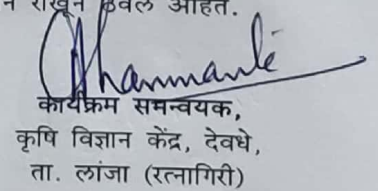 न राखून ठेवले आहेत.
कार्यक्रम समन्वयक,
कृषि विज्ञान केंद्र, देवधे,
ता. लांजा (रत्नागिरी)